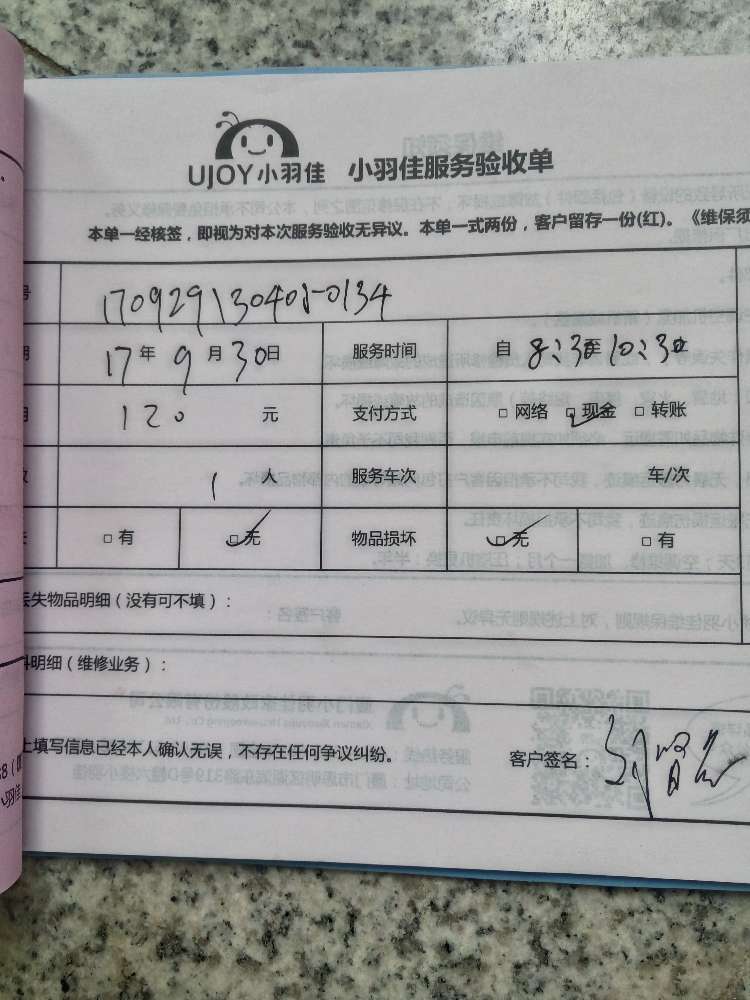 UJOY小羽佳 小羽佳服务验收单
本单一经核签，即视为对本次服务验收无异议。本单一式两份，客户留存一份(红)。《维保须
号 170929130401-0134
17年9月30日 服务时间 自8:30至10:30
120 元 支付方式 □网络 ☑现金 □转账
1人 服务车次 车/次
□有 ☑无 物品损坏 ☑无 □有
丢失物品明细（没有可不填）：
料明细（维修业务）：
上填写信息已经本人确认无误，不存在任何争议纠纷。 客户签名：